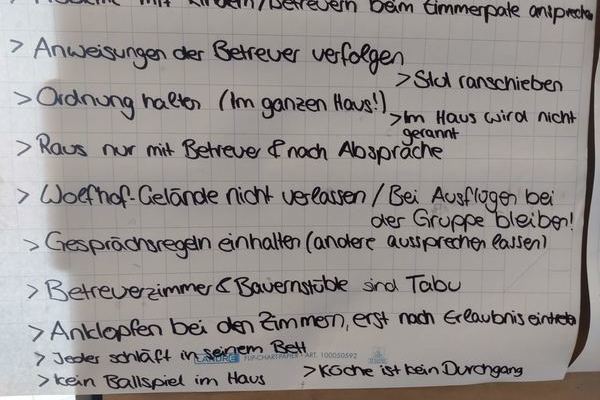 > Probleme mit Kindern/Betreuern beim Zimmerpate ansprechen
> Anweisungen der Betreuer verfolgen
> Stul ranschieben
> Ordnung halten (Im ganzen Haus!)
> Im Haus wird nicht
gerannt
> Raus nur mit Betreuer & nach Absprache
> Wolfhof-Gelände nicht verlassen / Bei Ausflügen bei
der Gruppe bleiben!
> Gesprächsregeln einhalten (andere aussprechen lassen)
> Betreuerzimmer & Bauernstüble sind Tabu
> Anklopfen bei den Zimmern, erst nach Erlaubnis eintreten
> Jeder schläft in seinem Bett
LANDRÉ FLIP-CHART-PAPIER • ART. 100050592
> kein Ballspiel im Haus
> Küche ist kein Durchgang